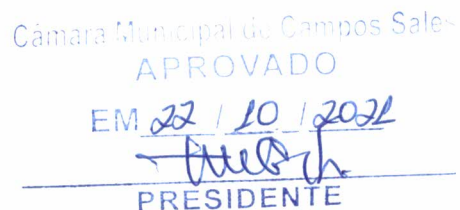 Câmara Municipal de Campos Sales
APROVADO
EM 22 / 10 / 2021
PRESIDENTE